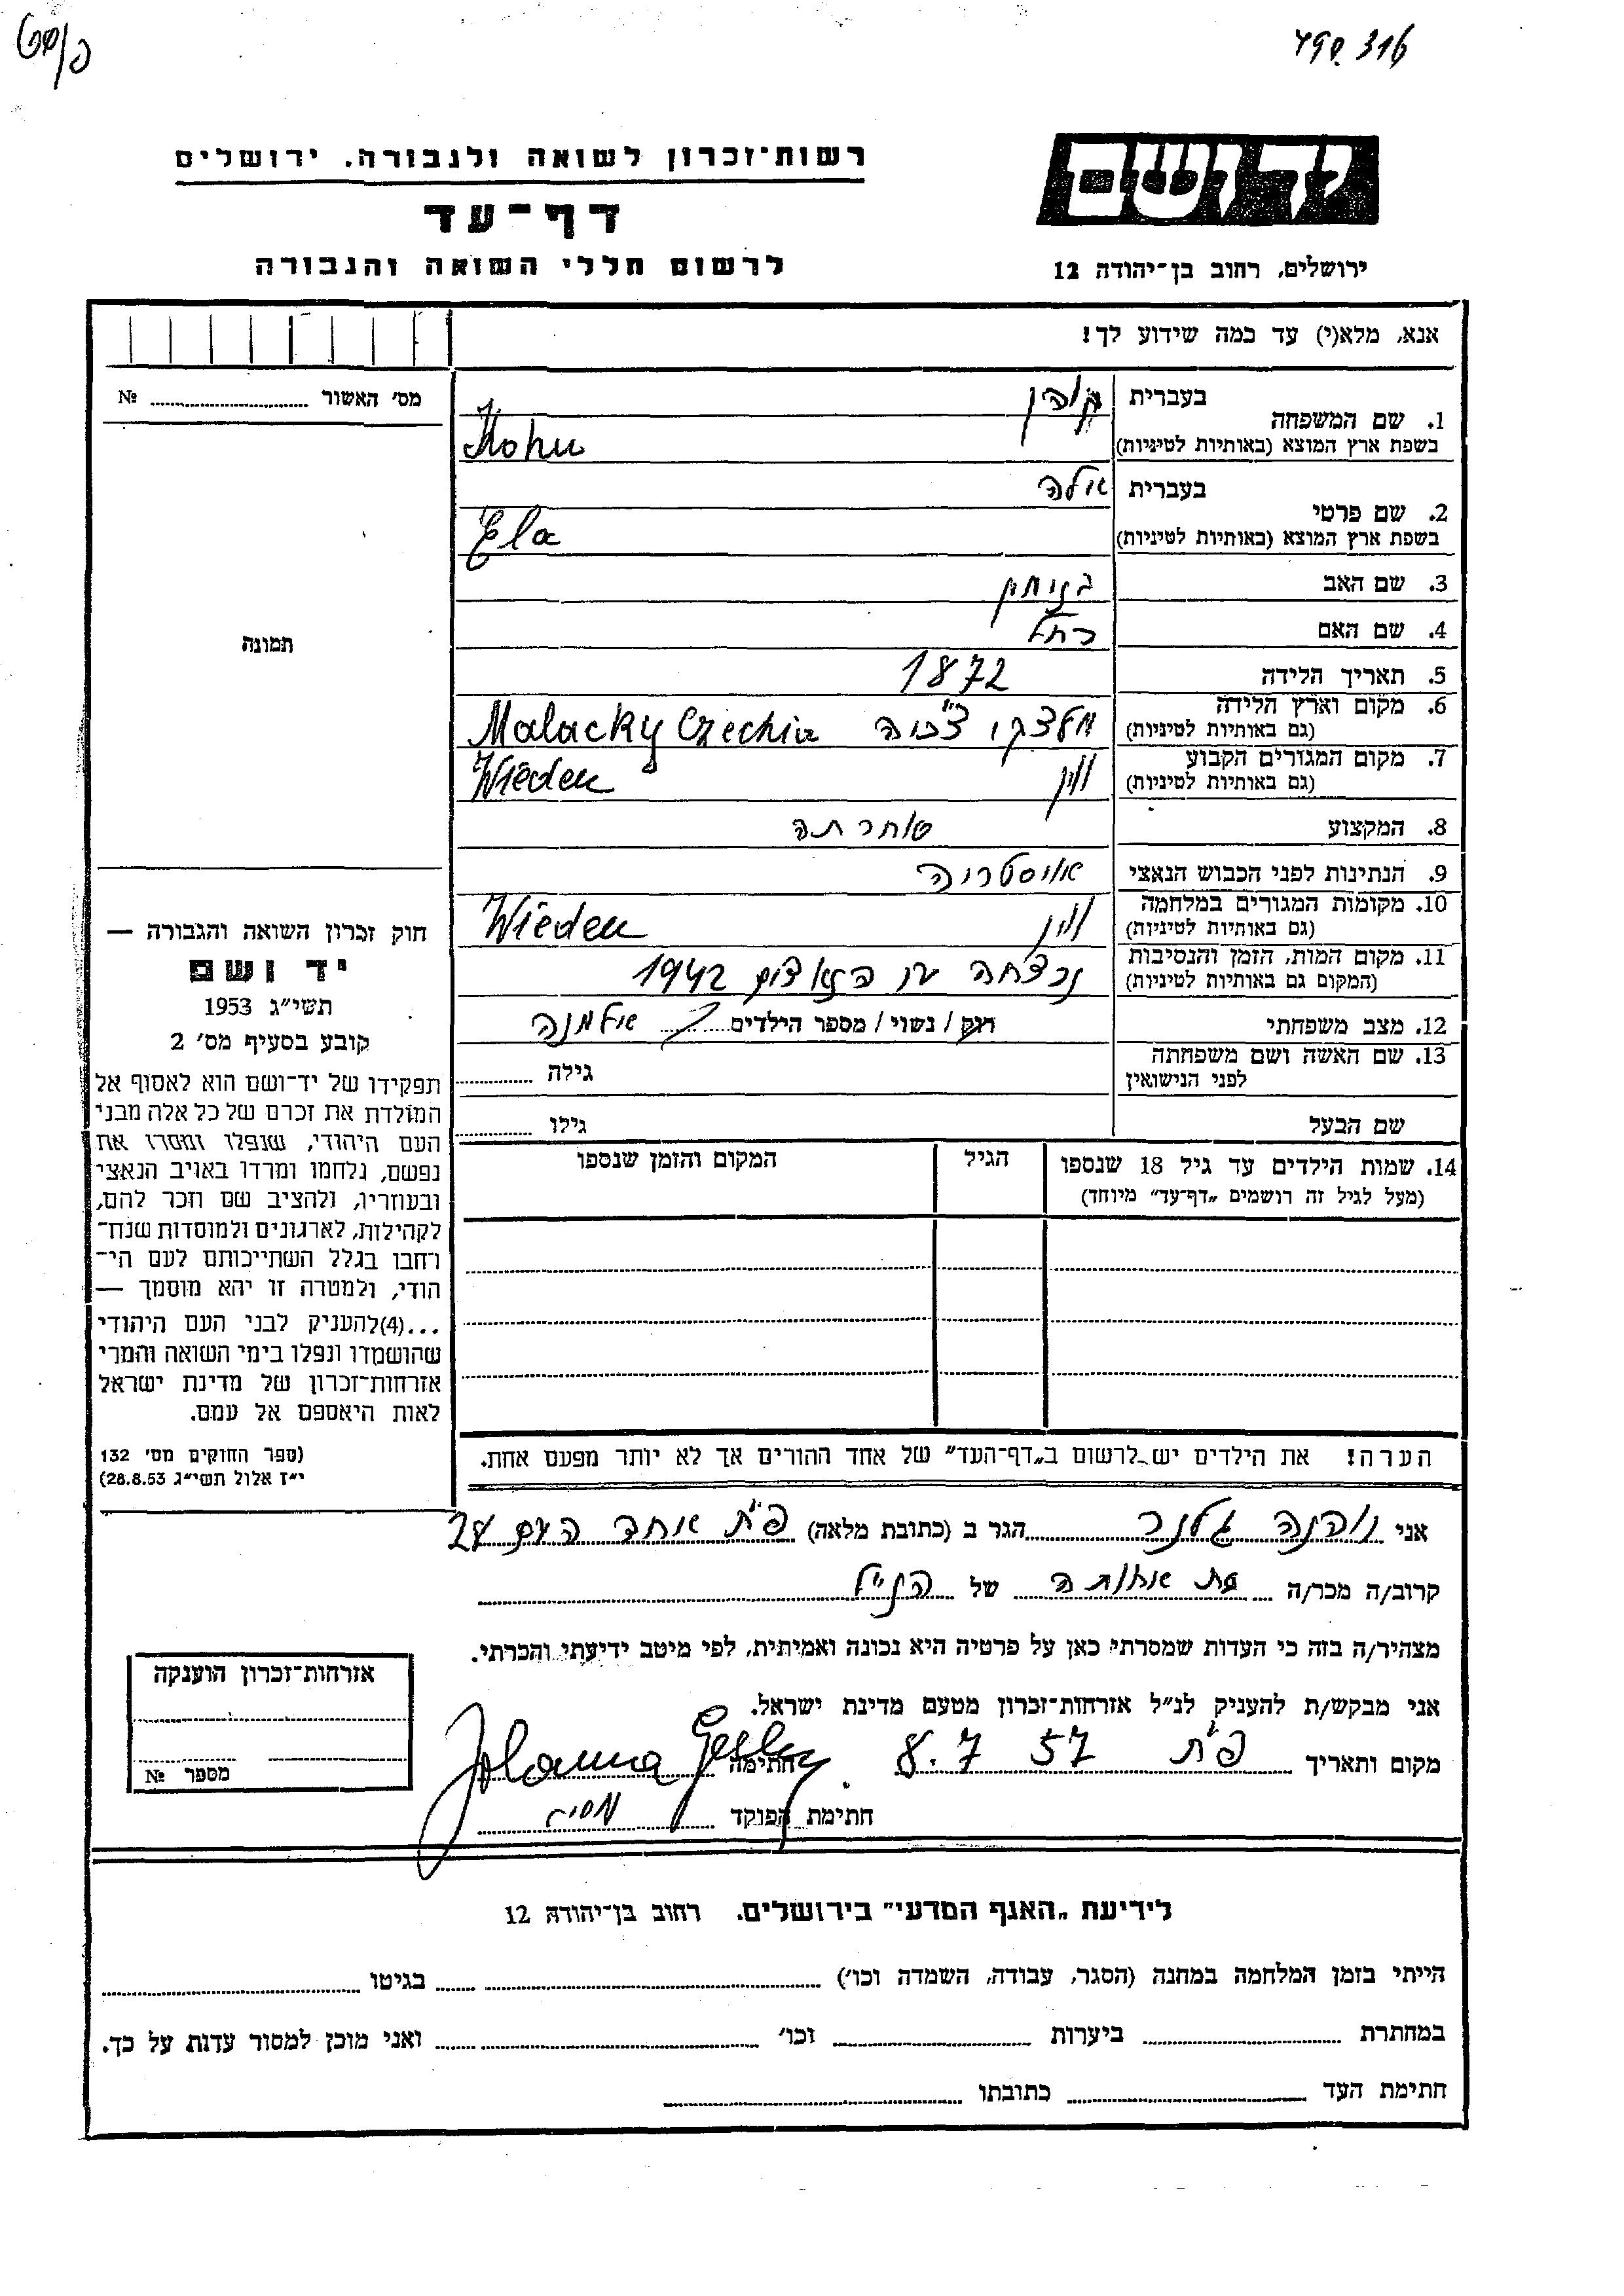 רשות־זכרון לשואה ולגבורה. ירושלים
דף־עד
לרשום חללי השואה והגבורה
ידושם
ירושלים, רחוב בן־יהודה 12
אנא, מלא(י) עד כמה שידוע לך!
מס׳ האשור № 
תמונה
1. שם המשפחה
בעברית קוהן
בשפת ארץ המוצא (באותיות לטיניות) Kohn
2. שם פרטי
בעברית אלה
בשפת ארץ המוצא (באותיות לטיניות) Ela
3. שם האב
4. שם האם רחל
5. תאריך הלידה 1872
6. מקום וארץ הלידה
(גם באותיות לטיניות) Malacky Czechia
7. מקום המגורים הקבוע וין
(גם באותיות לטיניות) Wieden
8. המקצוע סוחרתה
9. הנתינות לפני הכבוש הנאצי אוסטריה
10. מקומות המגורים במלחמה וין
(גם באותיות לטיניות) Wieden
11. מקום המות, הזמן והנסיבות
(המקום גם באותיות לטיניות) נרצחה 1942
12. מצב משפחתי רווק / נשוי / מספר הילדים אלמנה
13. שם האשה ושם משפחתה
לפני הנישואין גילה
שם הבעל גילו
14. שמות הילדים עד גיל 18 שנספו הגיל המקום והזמן שנספו
(מעל לגיל זה רושמים „דף־עד״ מיוחד)
הערה! את הילדים יש לרשום ב„דף־העד״ של אחד ההורים אך לא יותר מפעם אחת.
חוק זכרון השואה והגבורה —
יד ושם
תשי״ג 1953
קובע בסעיף מס׳ 2
תפקידו של יד־ושם הוא לאסוף אל
המולדת את זכרם של כל אלה מבני
העם היהודי, שנפלו ומסרו את
נפשם, נלחמו ומרדו באויב הנאצי
ובעוזריו, ולהציב שם וזכר להם,
לקהילות, לארגונים ולמוסדות שנח־
רבו בגלל השתייכותם לעם הי־
הודי, ולמטרה זו יהא מוסמך —
...(4)להעניק לבני העם היהודי
שהושמדו ונפלו בימי השואה והמרי
אזרחות־זכרון של מדינת ישראל
לאות היאספם אל עמם.
(ספר החוקים מס׳ 132
י״ז אלול תשי״ג 28.8.53)
אני יוהנה גלנר הגר ב (כתובת מלאה) פ״ת אחד העם 27
קרוב/ה מכר/ה בת אחותה של הנ״ל
מצהיר/ה בזה כי העדות שמסרתי כאן על פרטיה היא נכונה ואמיתית, לפי מיטב ידיעתי והכרתי.
אני מבקש/ת להעניק לנ״ל אזרחות־זכרון מטעם מדינת ישראל.
מקום ותאריך פ״ת 8.7 57 חתימה Johanna
חתימת הפוקד
אזרחות־זכרון הוענקה
מספר №
לידיעת „האגף המדעי״ בירושלים. רחוב בן־יהודה 12
הייתי בזמן המלחמה במחנה (הסגר, עבודה, השמדה וכו׳) בגיטו
במחתרת ביערות וכו׳ ואני מוכן למסור עדות על כך.
חתימת העד כתובתו